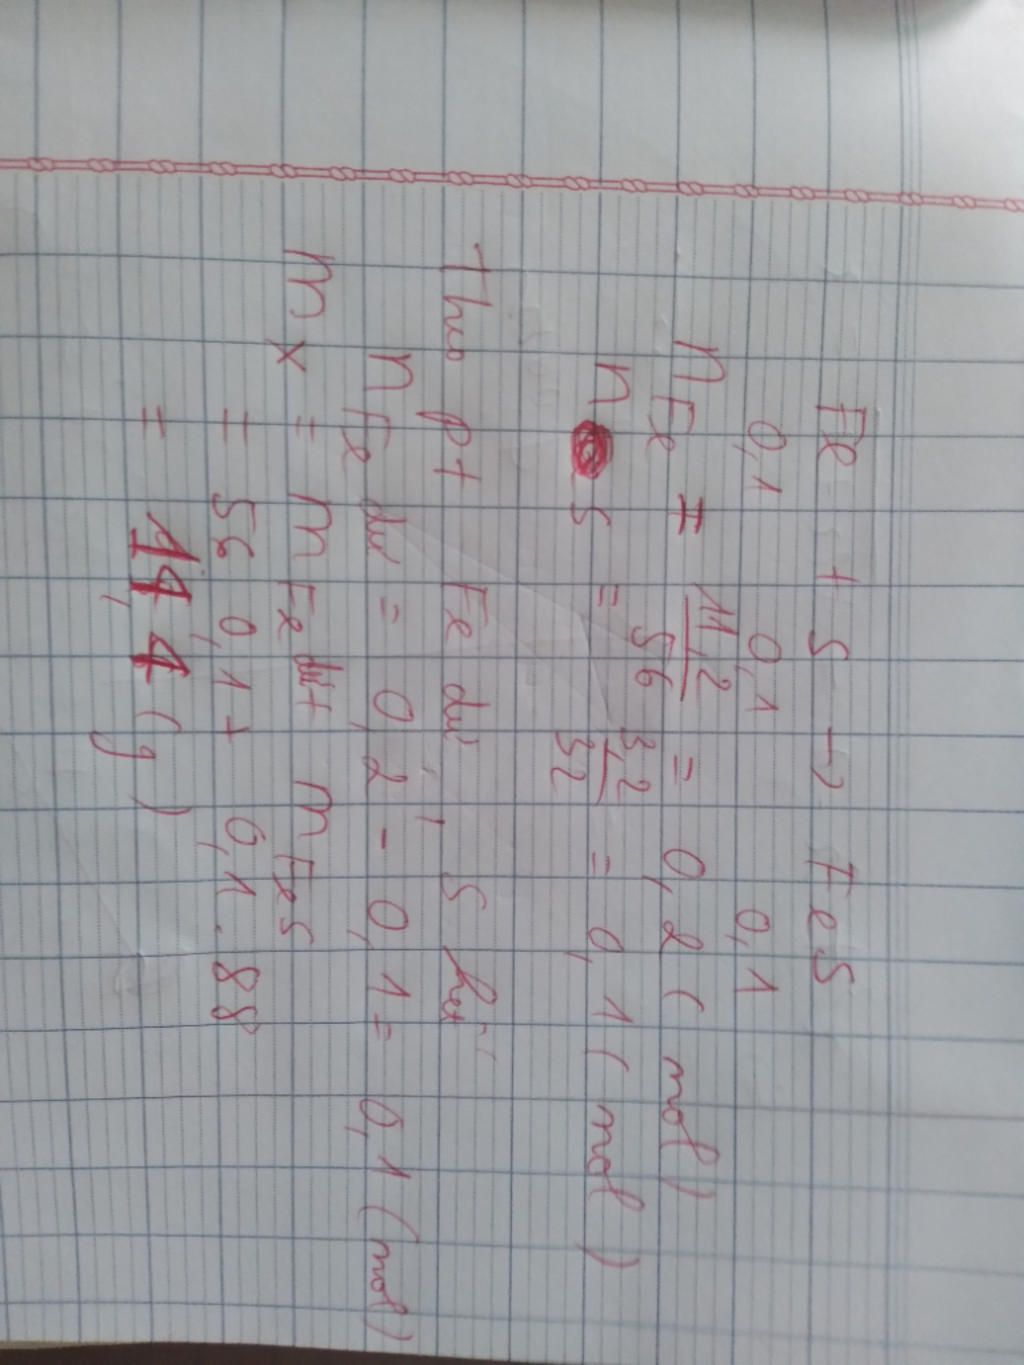 Fe + S → FeS
0,1 0,1 0,1
n Fe = 11,2/56 = 0,2 ( mol)
n S = 3,2/32 = 0,1 ( mol )
Theo pt Fe dư, S hết
n Fe dư = 0,2 - 0,1 = 0,1 (mol)
m x = m Fe dư + m FeS
= 56 0,1 + 0,1 . 88
= 14,4 (g)